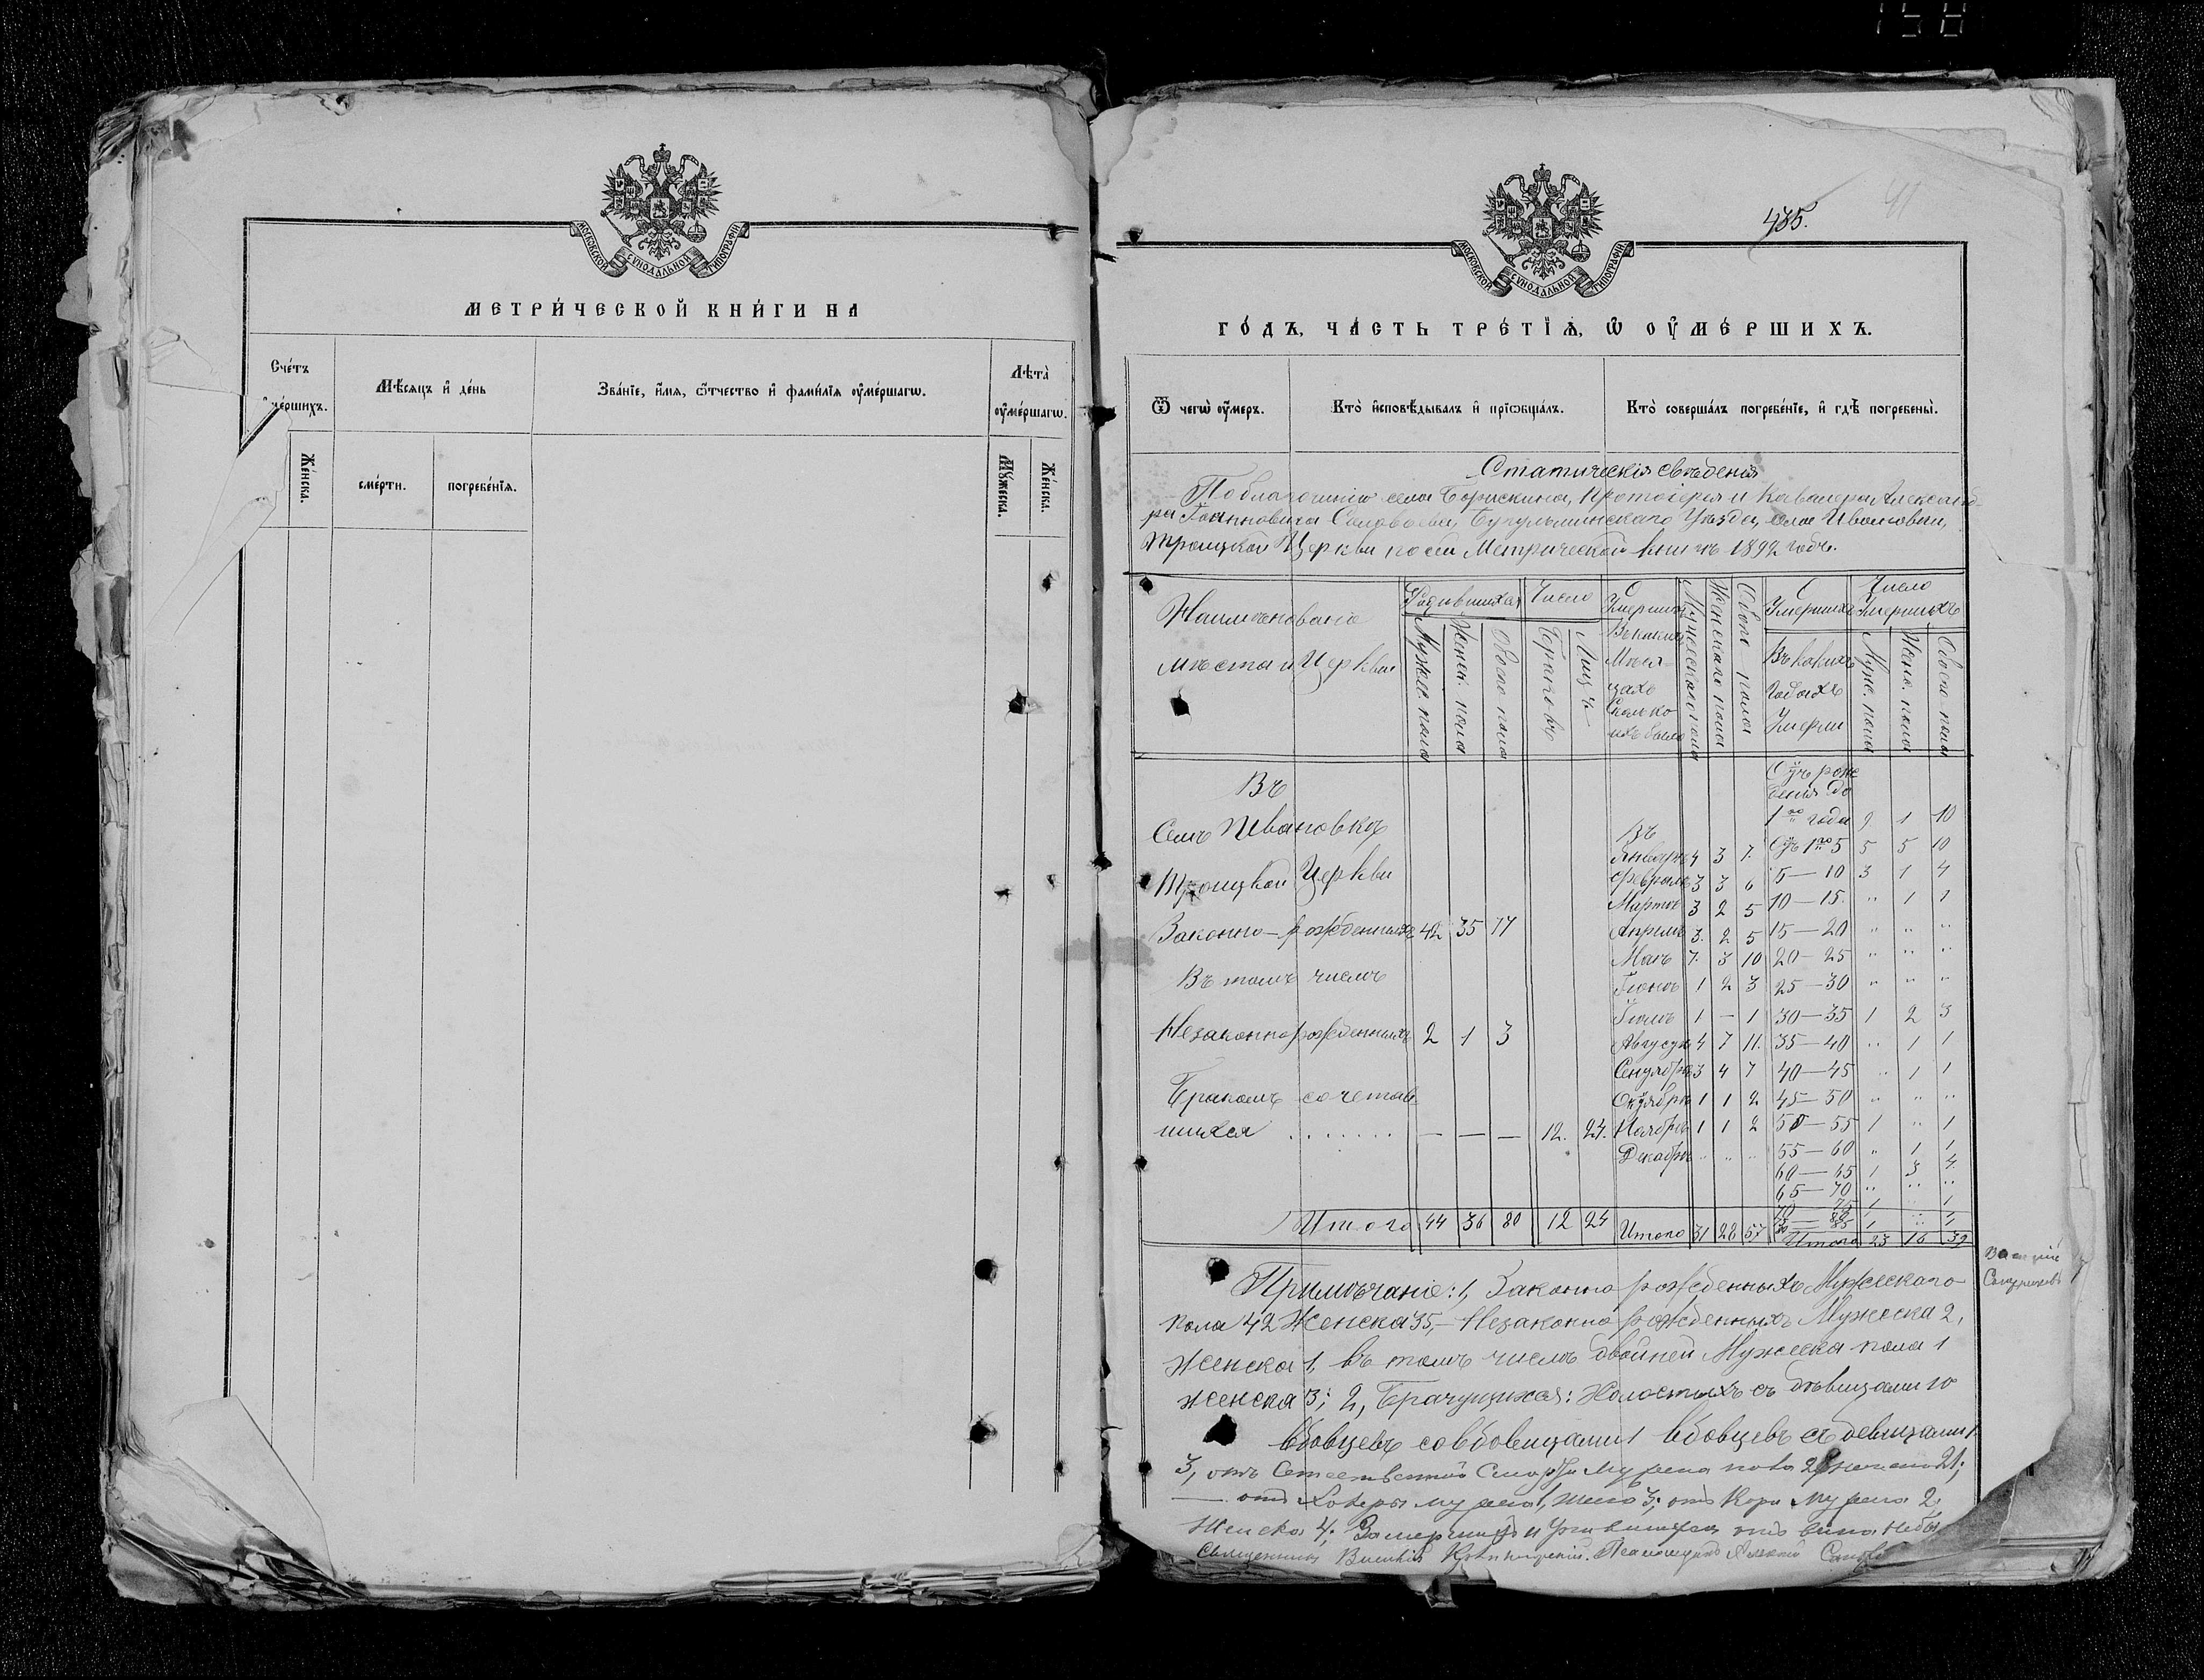 158
МОСКОВСКОЙ СѴНОДАЛЬНОЙ ТИПОГРАФІИ
МЕТРИ́ЧЕСКОЙ КНИ́ГИ НА
Сче́тъ
Мѣ́сяцъ и҆ де́нь
Зва́нїе, и҆́мя, ѻ҆́тчество и҆ фамѝлїя ᲂу҆ме́ршагѡ.
Лѣ́та
ᲂу҆ме́ршагѡ.
Же́нска.
сме́рти.
погребе́нїя.
Мꙋ́жеска.
Же́нска.
485.
41
МОСКОВСКОЙ СѴНОДАЛЬНОЙ ТИПОГРАФІИ
ГО́ДЪ, ЧА́СТЬ ТРЕ́ТЇѦ, Ѡ҆ ОУ҆МЕ́РШИХЪ.
Ѿ чегѡ̀ ᲂу҆́меръ.
Кто̀ и҆сповѣ́дывалъ и҆ прїѡбща́лъ.
Кто̀ соверша́лъ погребе́нїе, и҆ гдѣ̀ погребены̀.
Статическія свѣденія
По благочинію села Борискина, Протоіерея и Кавалера Александ-
ра Іоанновича Соловьева, Бугульминскаго Уѣзда, села Ивановки,
Троицкой Церкви по сей Метрической книгѣ 1892 годъ.
Наименованіе
мѣста и Церкви
Родившихся
Число
Умершихъ
Въ какихъ
Мѣся-
цахъ
Сколько
ихъ было
Мужеск. пола
Женск. пола
Обоего пола
Браковъ
Лицъ
Мужескаго пола
Женскаго пола
Обоего пола
Умершихъ
Въ какихъ
годахъ
Умерли
Число
Умершихъ
Муж. пола
Женс. пола
Обоего пола
Въ
Селѣ Ивановкѣ
Троицкой Церкви
Отъ рож
денія до
1 го года 9 1 10
Въ
Январѣ 4 3 7. Отъ 1 до 5 5 5 10
Февралѣ 3 3 6 5—10 3 1 4
Мартѣ 3 2 5 10—15. " 1 1
Законно-рожденныхъ 42 35 77 Апрѣлѣ 3. 2 5 15—20 " " "
Маѣ 7. 3 10 20—25 " " "
Въ томъ числѣ Іюнѣ 1 2 3 25—30 " " "
Іюлѣ 1 - 1 30—35 1 2 3
Незаконнорожденныхъ 2 1 3 Августѣ 4 7 11. 35—40 " 1 1
Сентябрѣ 3 4 7 40—45 " 1 1
Бракомъ сочетав- Октябрѣ 1 1 2 45—50 " " "
шихся . . . . . . . — — — 12. 24. Ноябрѣ 1 1 2 50—55 1 " 1
Декабрѣ " " " 55—60 " 1 1
60—65 1 3 4.
65—70 " " "
Итого 44 36 80 12 24 Итого 31 28 57
Итого 23 16 39
Примѣчаніе: 1, Законно рожденныхъ Мужескаго
пола 42 Женска 35,— Незаконно рожденныхъ Мужеска 2,
женска 1, въ томъ числѣ двойней Мужеска пола 1
женска 3; 2, Брачущихся: Холостыхъ съ дѣвицами 10
вдовцевъ со вдовицами 1 вдовцевъ съ девицами 1.
3, отъ Естественной Смерти Мужеска пола
— отъ Холеры мужеска 1, женс 3; отъ Кори Мужеска 2
Женска 4; Замершихъ и Упившихся отъ вина небы
Священникъ Псаломщикъ